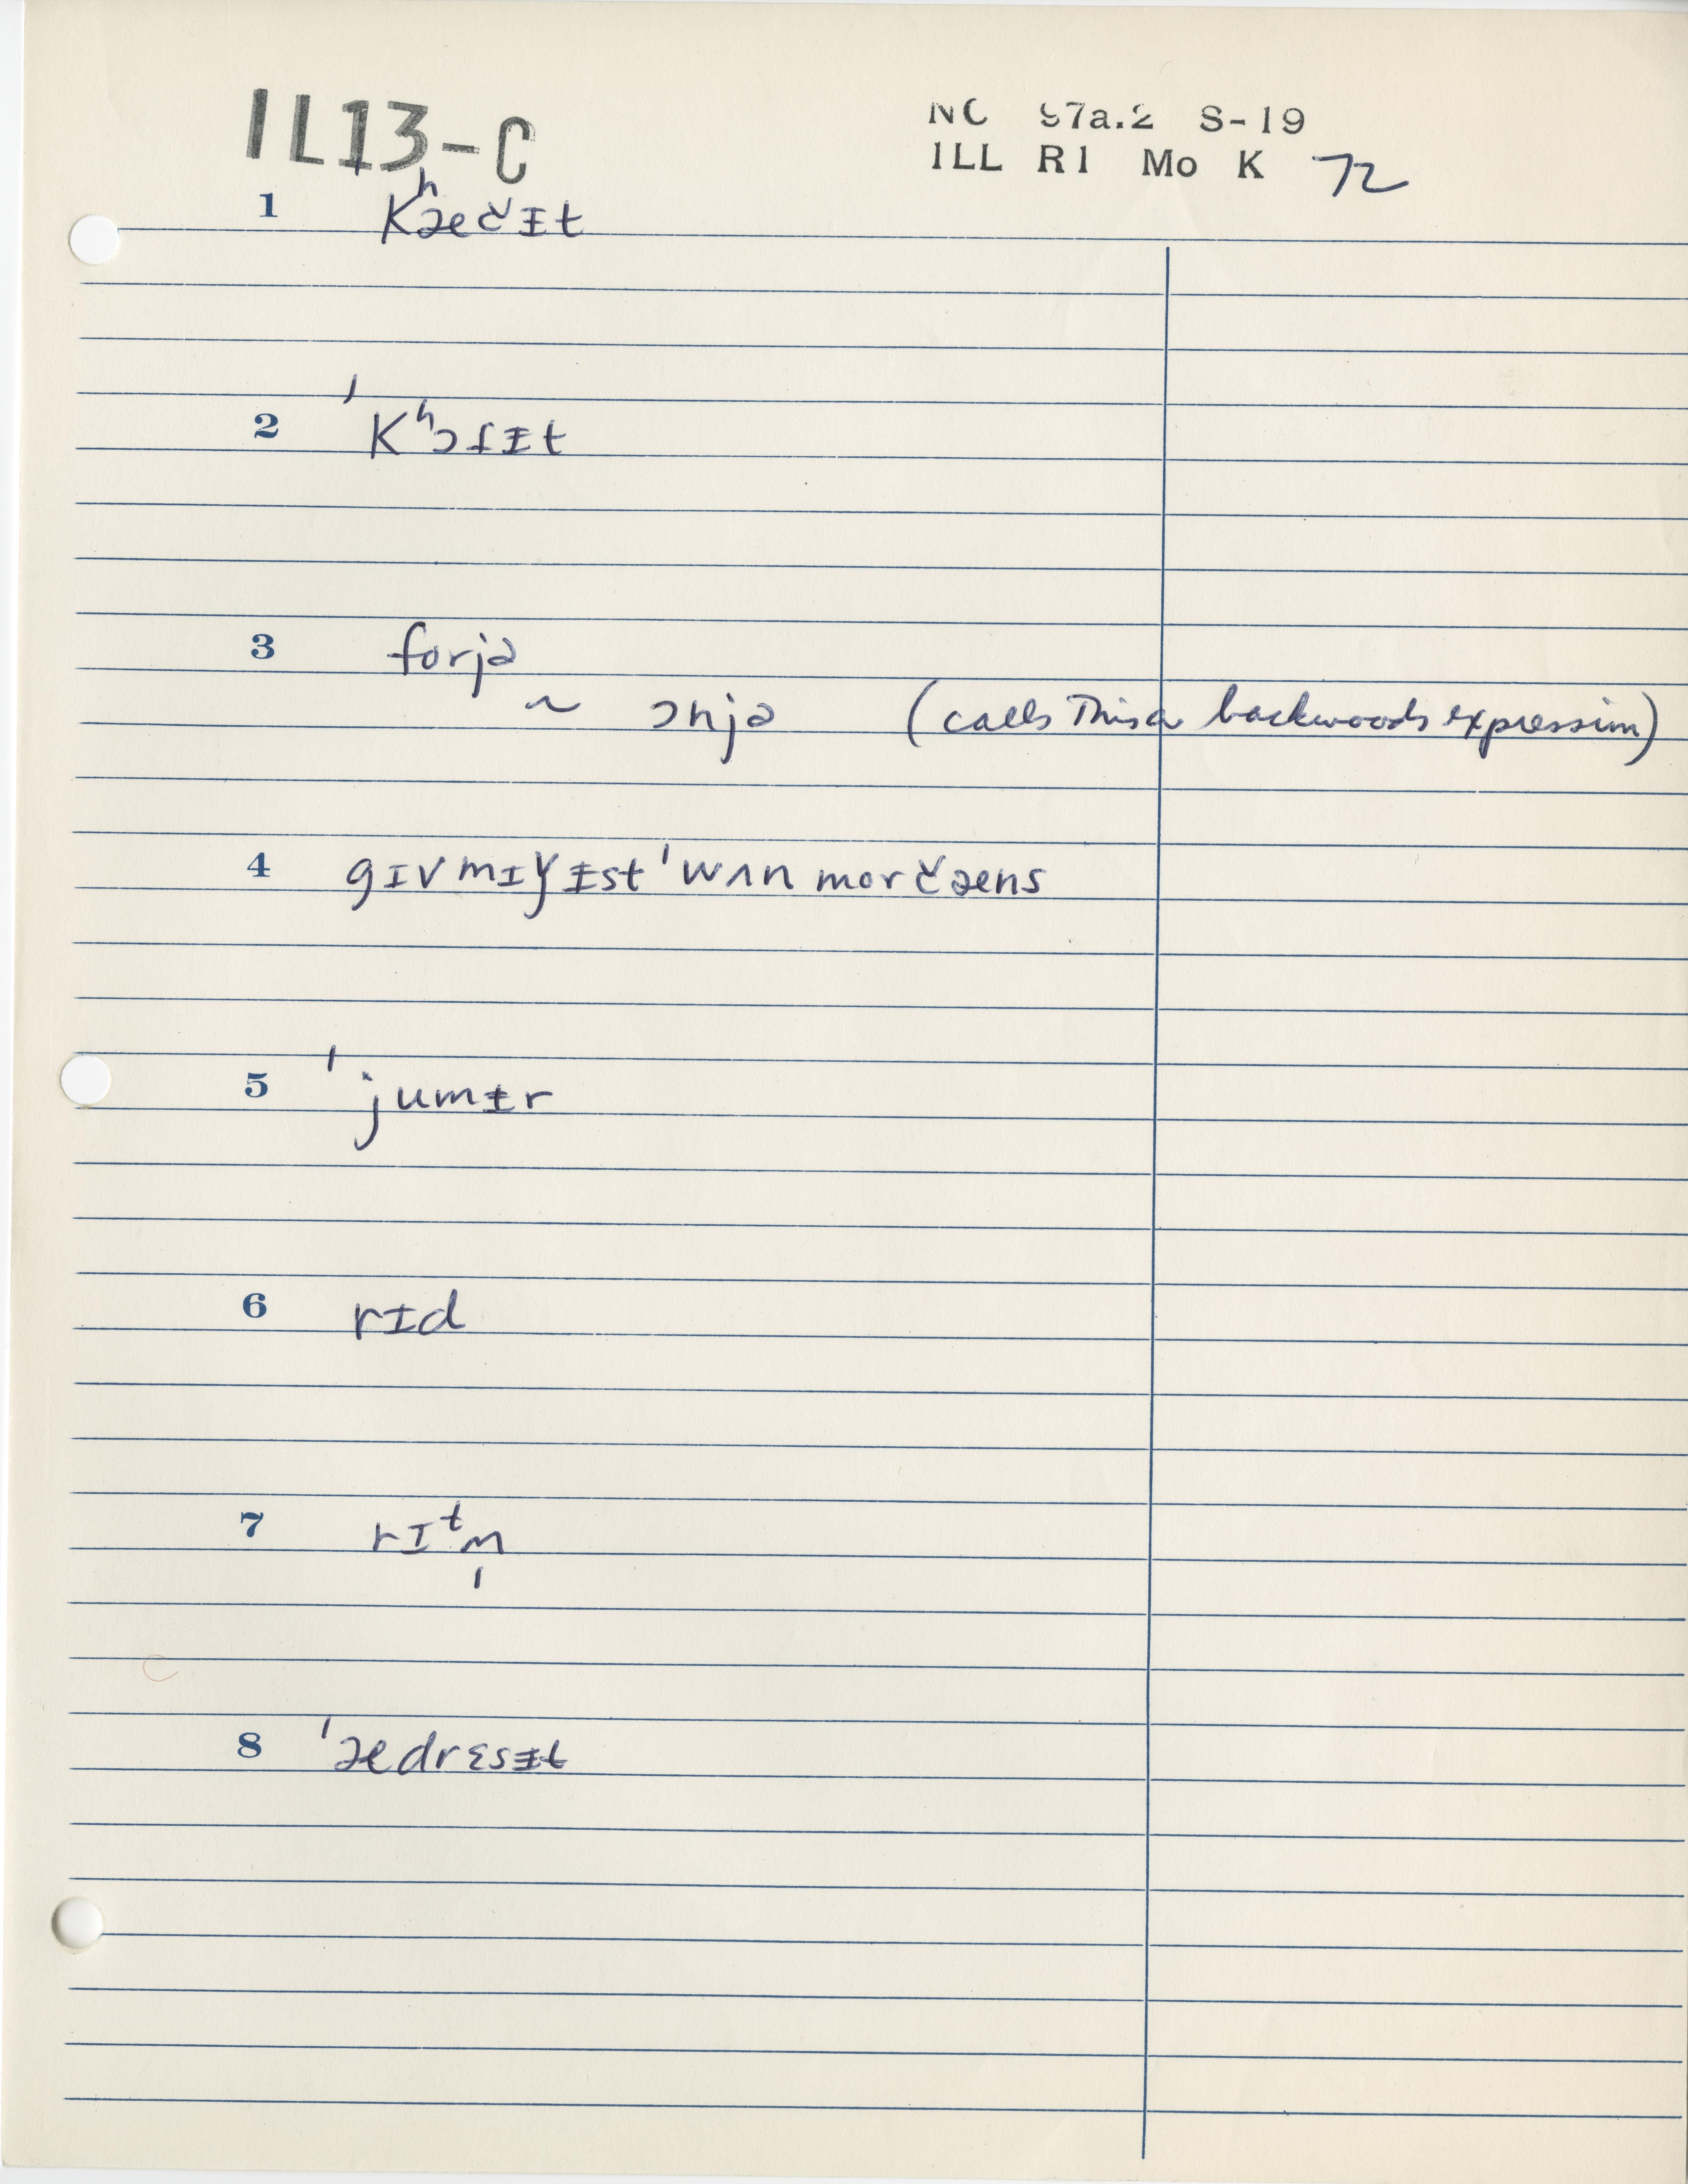 IL13-C
NC 97a.2 S-19
ILL R1 Mo K 72
1 ˈKʰæč̵ɪt
2 ˈKʰɔfᵻt
3 forjə
~ ɔnjə (calls This a backwoods expression)
4 gɪv mɪ ǰᵻst ˈwʌn mor čæns
5 ˈjumᵻr
6 rɪd
7 rɪᵗn̩
8 ˈædrɛsᵻt